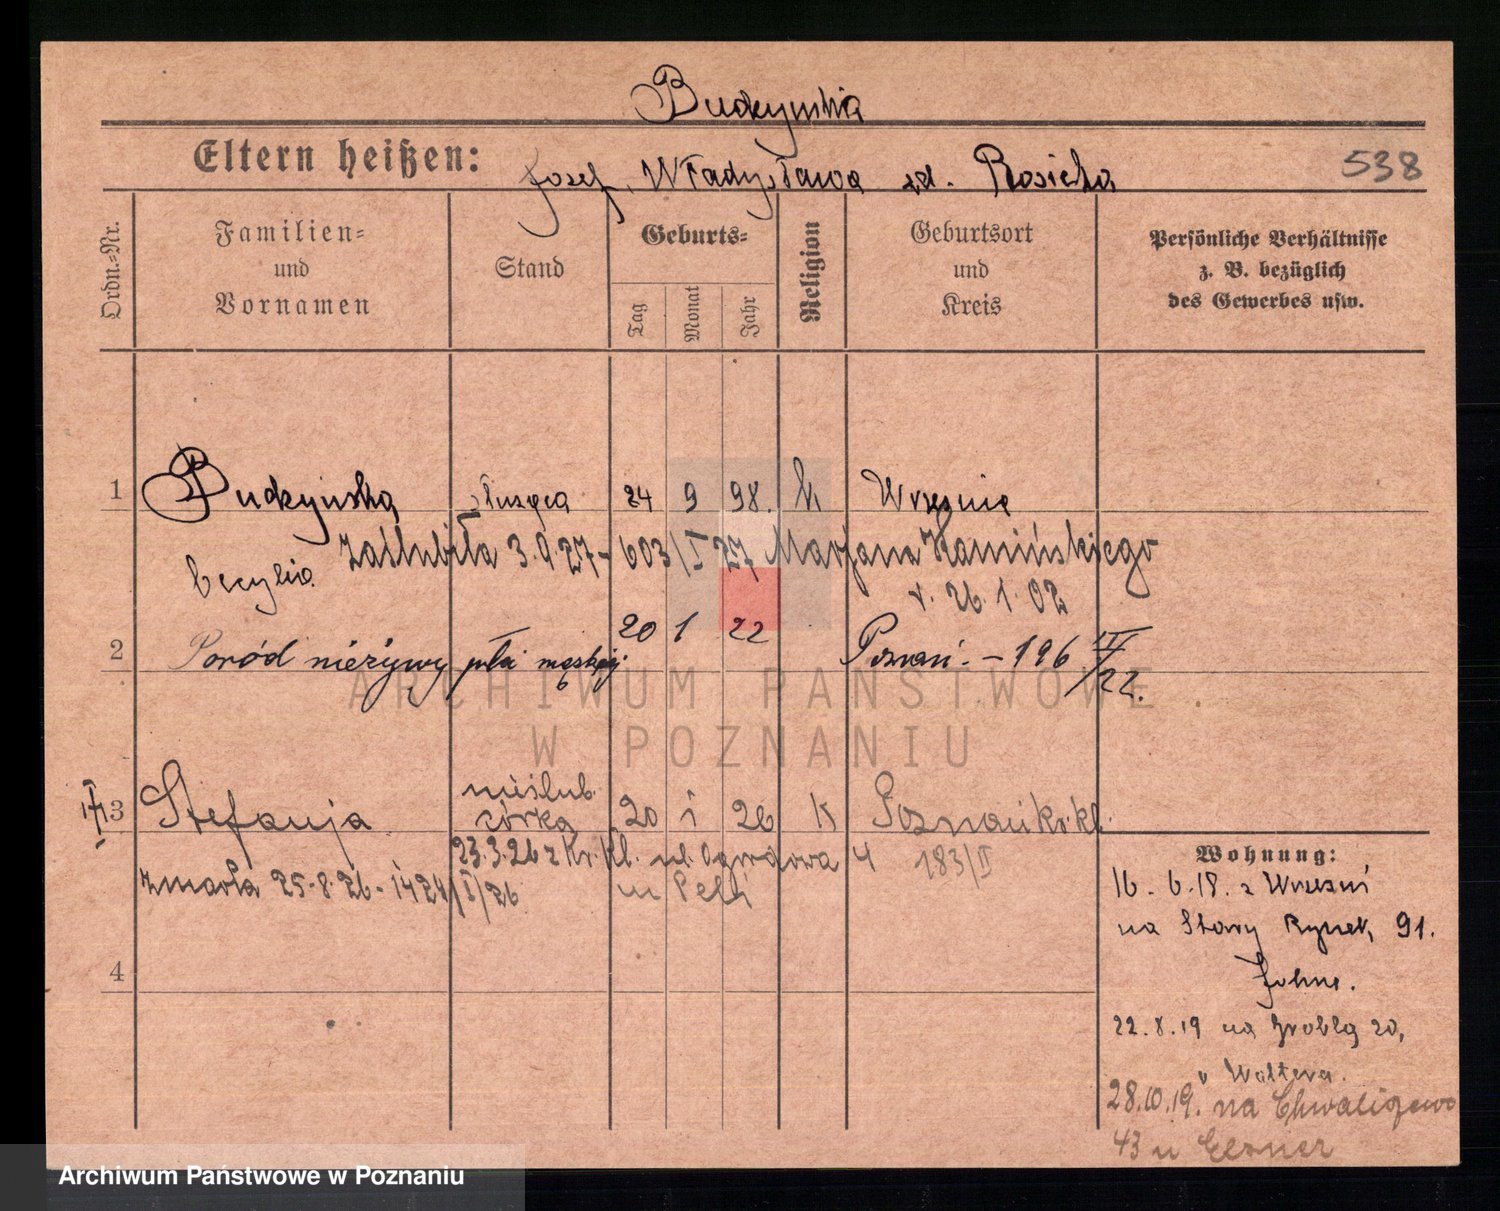 Budzyńska
Eltern heißen: Josef, Władysława zd. Rosicka 538
Ordn.-Nr.
Familien- und Vornamen
Stand
Geburts-
Tag Monat Jahr
Religion
Geburtsort und Kreis
Persönliche Verhältnisse z. B. bezüglich des Gewerbes usw.
1 Budzyńska służąca 24 9 98. k. Września
Cecylia zaślubiła 3.9.27 - 603/I 27 Marjana Kamińskiego
r. 26.1.02
20 1 22
2 Poród nieżywy płci męskiej. Poznań. - 196 II/22.
nieślub.
3 Stefanja córka 20 1 26 k Poznań kr. kl.
23.3.26 z Kr. Kl. ul. Ogrodowa 4 183/I
zmarła 25.8.26 - 1424/I/26
4
Wohnung:
16.6.18. z Wrześni
na Stary Rynek, 91.
Johne.
22.8.19 na Groblą 20,
u Waltera.
28.10.19. na Chwaliszewo
43 u Elsner
ARCHIWUM PAŃSTWOWE
W POZNANIU
Archiwum Państwowe w Poznaniu